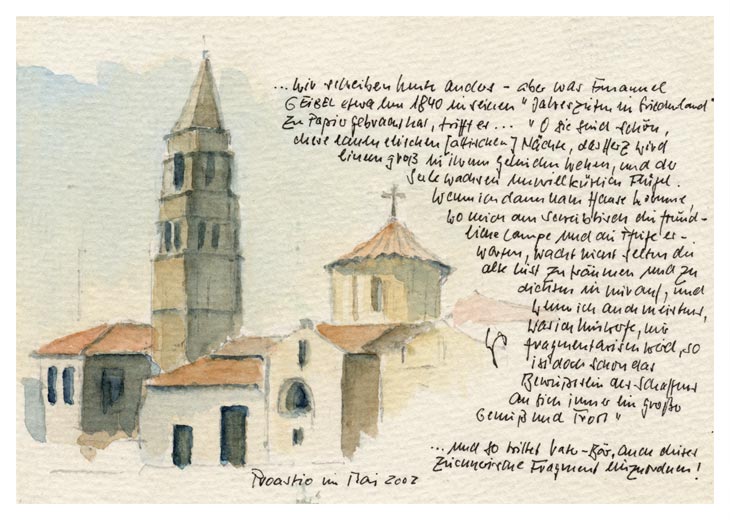 ... wir schreiben heute anders - aber was Emanuel
GEIBEL etwa um 1840 in seinen "Jahreszeiten in Griechenland"
zu Papier gebracht hat, trifft er ... "O sie sind schön,
diese [attischen] Nächte, das Herz wird
einem groß in ihrem Wehen, und der
Seele wachsen unwillkürlich Flügel.
Wenn ich dann nach Hause komme,
wo mich am Schreibtisch die freund-
liche Lampe und die Pfeife er-
warten, wacht nicht selten die
alte Lust zu träumen und zu
dichten in mir auf, und
wenn ich auch meistens,
was ich hinwerfe, nur
fragmentarisch wird, so
ist doch schon das
Bewußtsein des Schaffens
an sich immer ein großer
Genuß und Trost"
... und so auch dieses
zeichnerische Fragment einzuordnen!
Proastio im Mai 2002